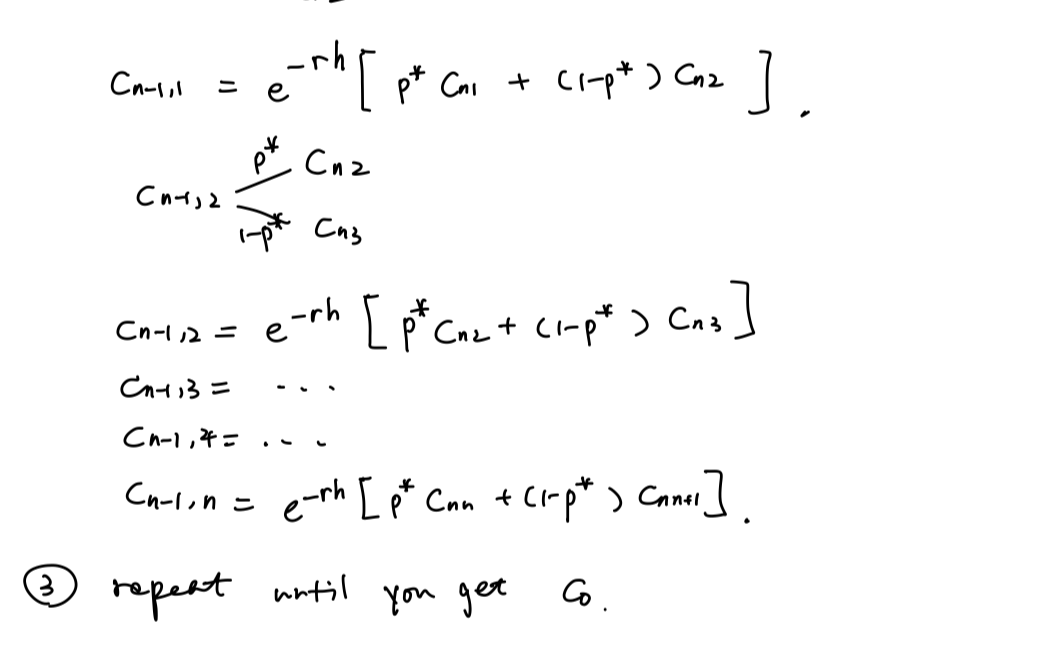 Cn-1,1 = e^-rh [ p* Cn1 + (1-p*) Cn2 ].
p* Cn2
Cn-1,2
1-p* Cn3
Cn-1,2 = e^-rh [ p* Cn2 + (1-p*) Cn3 ]
Cn-1,3 = ...
Cn-1,4 = ...
Cn-1,n = e^-rh [ p* Cnn + (1-p*) Cnn+1 ].
③ repeat until you get C0.